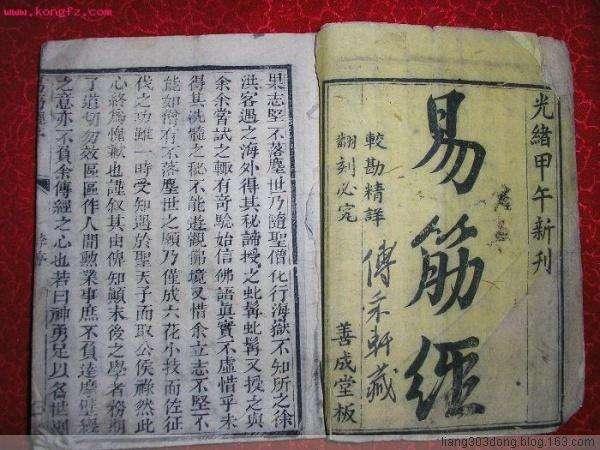 www.kongfz.com
光緒甲午新刊
易筋經
較勘精詳
翻刻必究
善成堂板
果志堅不落塵世乃隨聖僧化行海嶽不知所之徐
洪客遇之海外得其秘諦授之虬髯虬髯又授之與
余余嘗試之輒有奇驗始信佛語真實不虛惜乎未
得其洗髓之秘不能遊觀佛境又惜余立志不堅不
能如僧有不落塵世之願乃僅成六花小技而佐征
伐之功雖一時受知遇於聖天子而取公侯祿然此
心終為愧歉也謹敘其由俾知顛末後之學者務期
了道切勿效區區作人間勳業事庶不負達摩
之意亦不負余傳經之心也若曰神勇足以名世則
liang303dong.blog.163.com